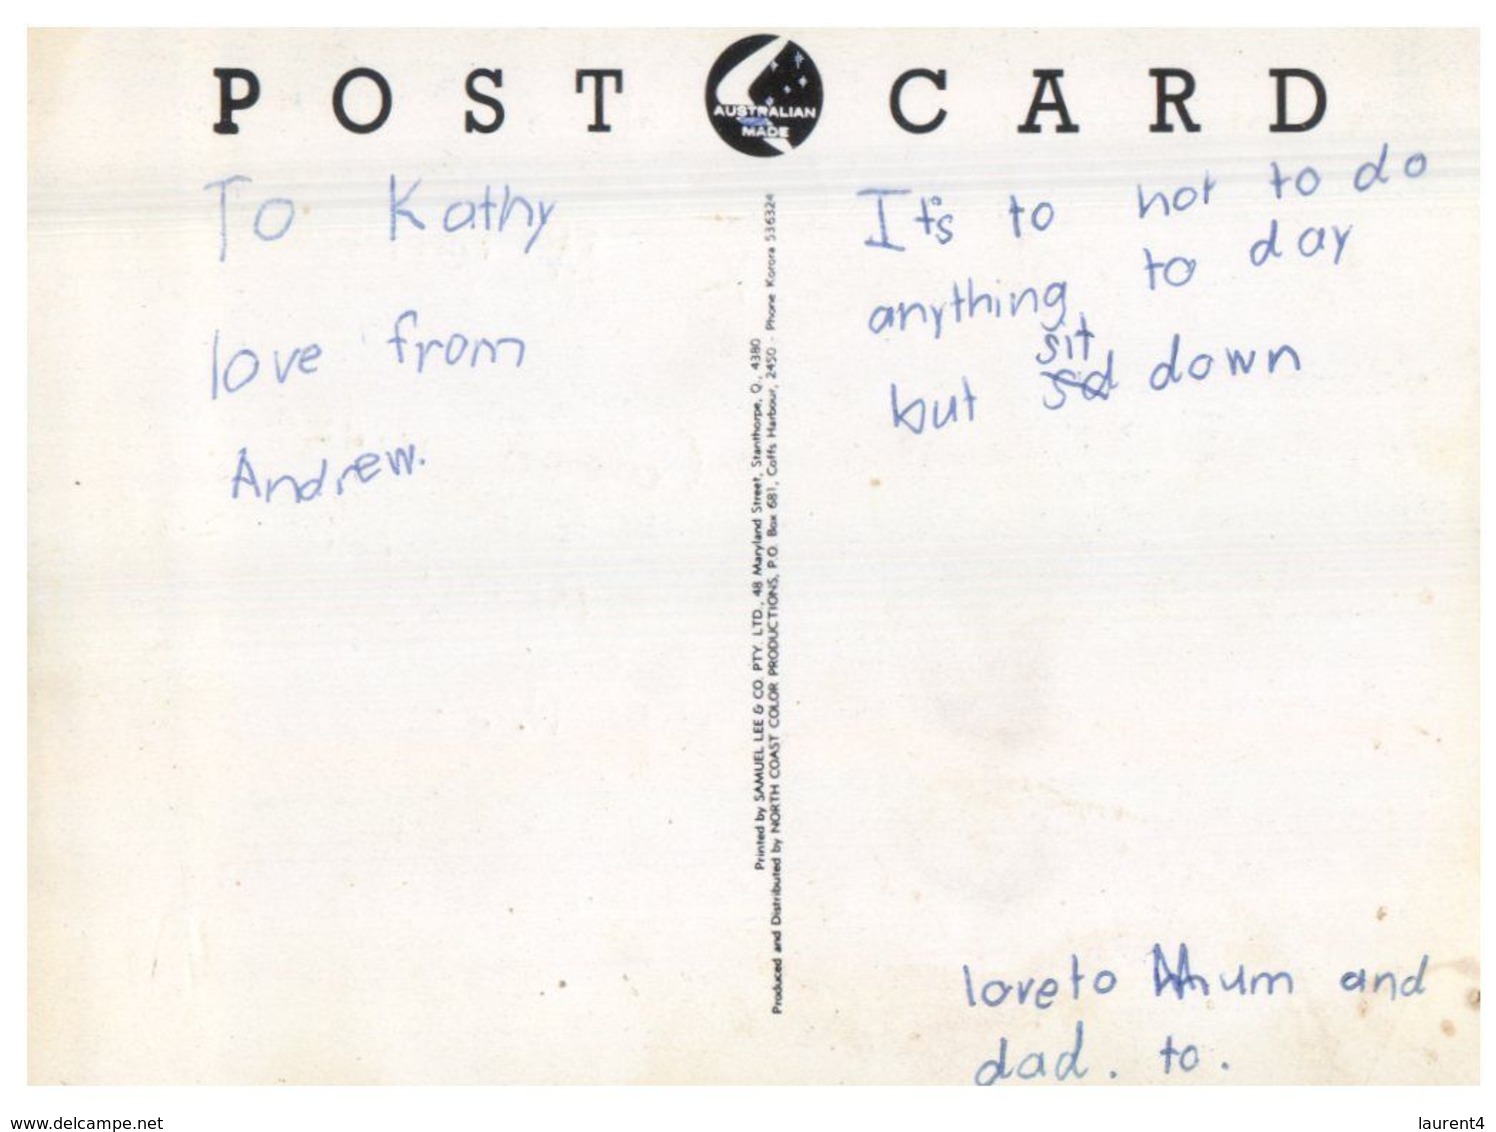 POST CARD
AUSTRALIAN
MADE
To Kathy
love from
Andrew.
Printed by SAMUEL LEE & CO. PTY. LTD., 48 Maryland Street, Stanthorpe, Q., 4380
Produced and Distributed by NORTH COAST COLOR PRODUCTIONS, P.O. Box 681, Coffs Harbour, 2450 - Phone Korora 536324
It's to hot to do
anything to day
but sit down
love to Mum and
dad. to.
www.delcampe.net
laurent4